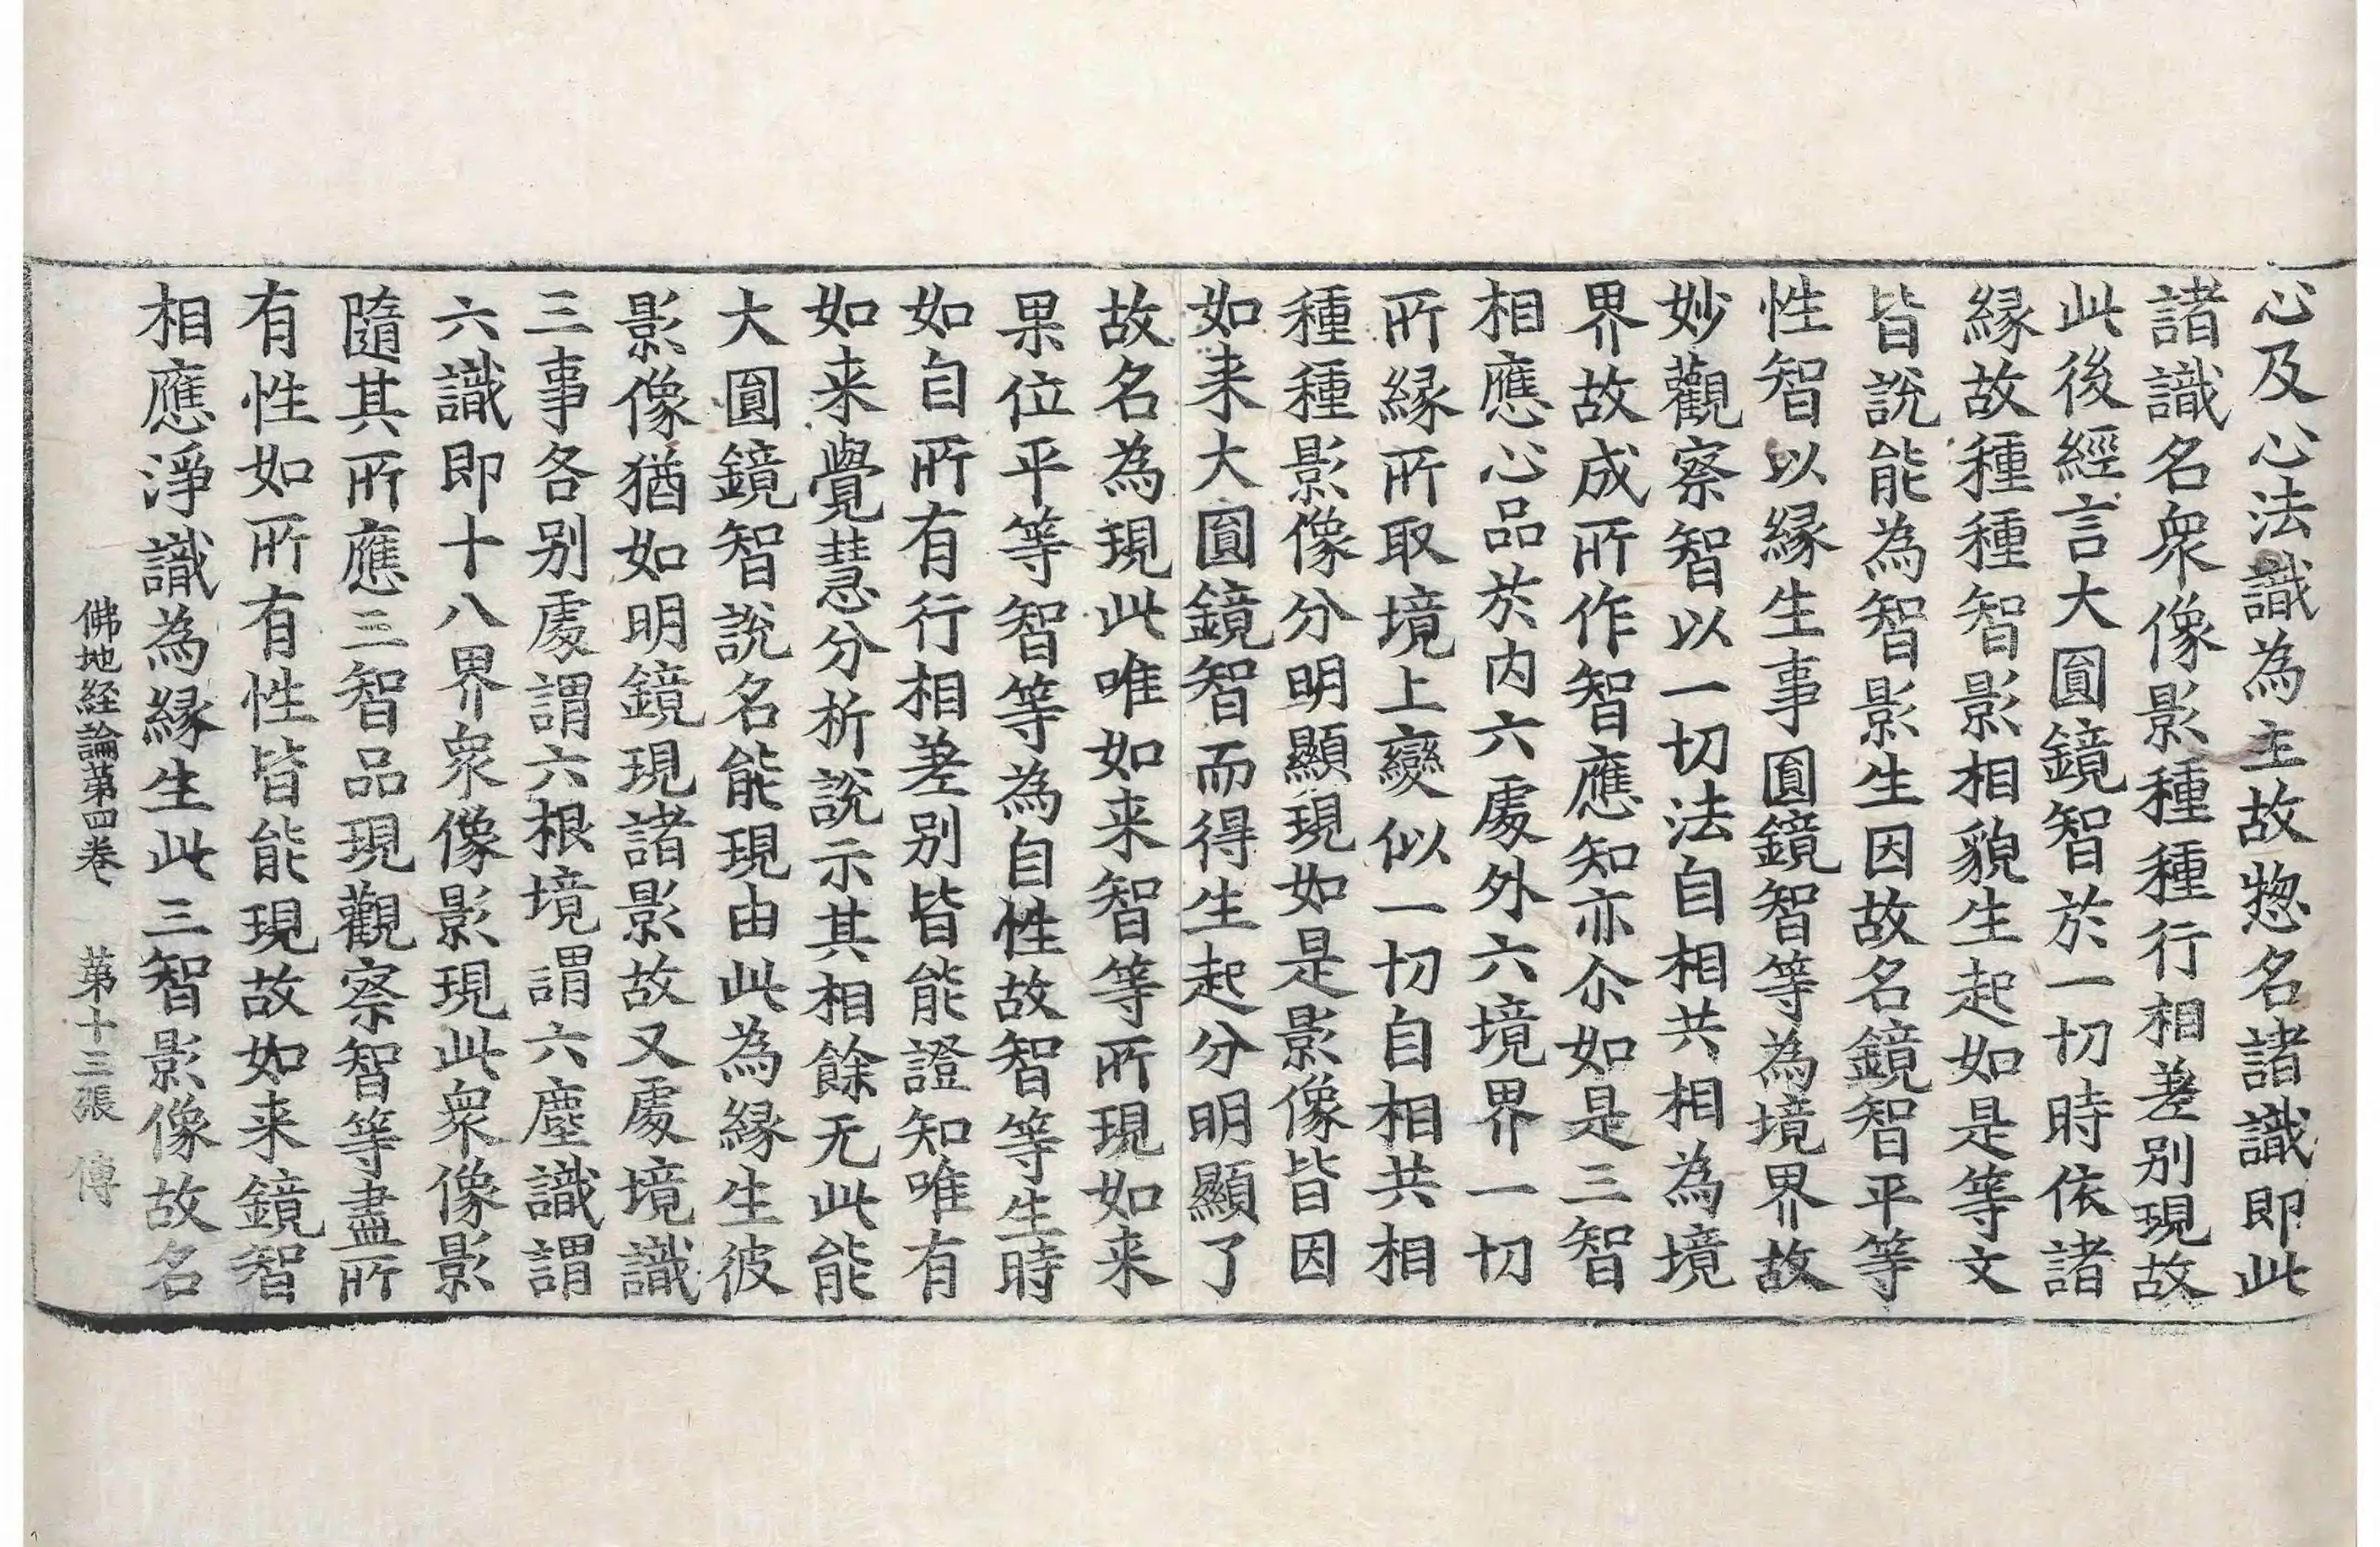 心及心法識為主故惣名諸識即此
諸識名衆像影種種行相差别現故
此後經言大圎鏡智於一切時依諸
縁故種種智影相貌生起如是等文
皆說能為智影生因故名鏡智平等
性智以縁生事圎鏡智等為境界故
妙觀察智以一切法自相共相為境
界故成所作智應知亦尒如是三智
相應心品於内六處外六境界一切
所縁所取境上變似一切自相共相
種種影像分明顯現如是影像皆因
如来大圎鏡智而得生起分明顯了
故名為現此唯如来智等所現如来
果位平等智等為自性故智等生時
如自所有行相差别皆能證知唯有
如来覺慧分析說示其相餘无此能
大圎鏡智說名能現由此為縁生彼
影像猶如明鏡現諸影故又處境識
三事各别處謂六根境謂六塵識謂
六識即十八界衆像影現此衆像影
隨其所應三智品現觀察智等盡所
有性如所有性皆能現故如来鏡智
相應淨識為縁生此三智影像故名
佛地経論第四卷 第十三張 傳